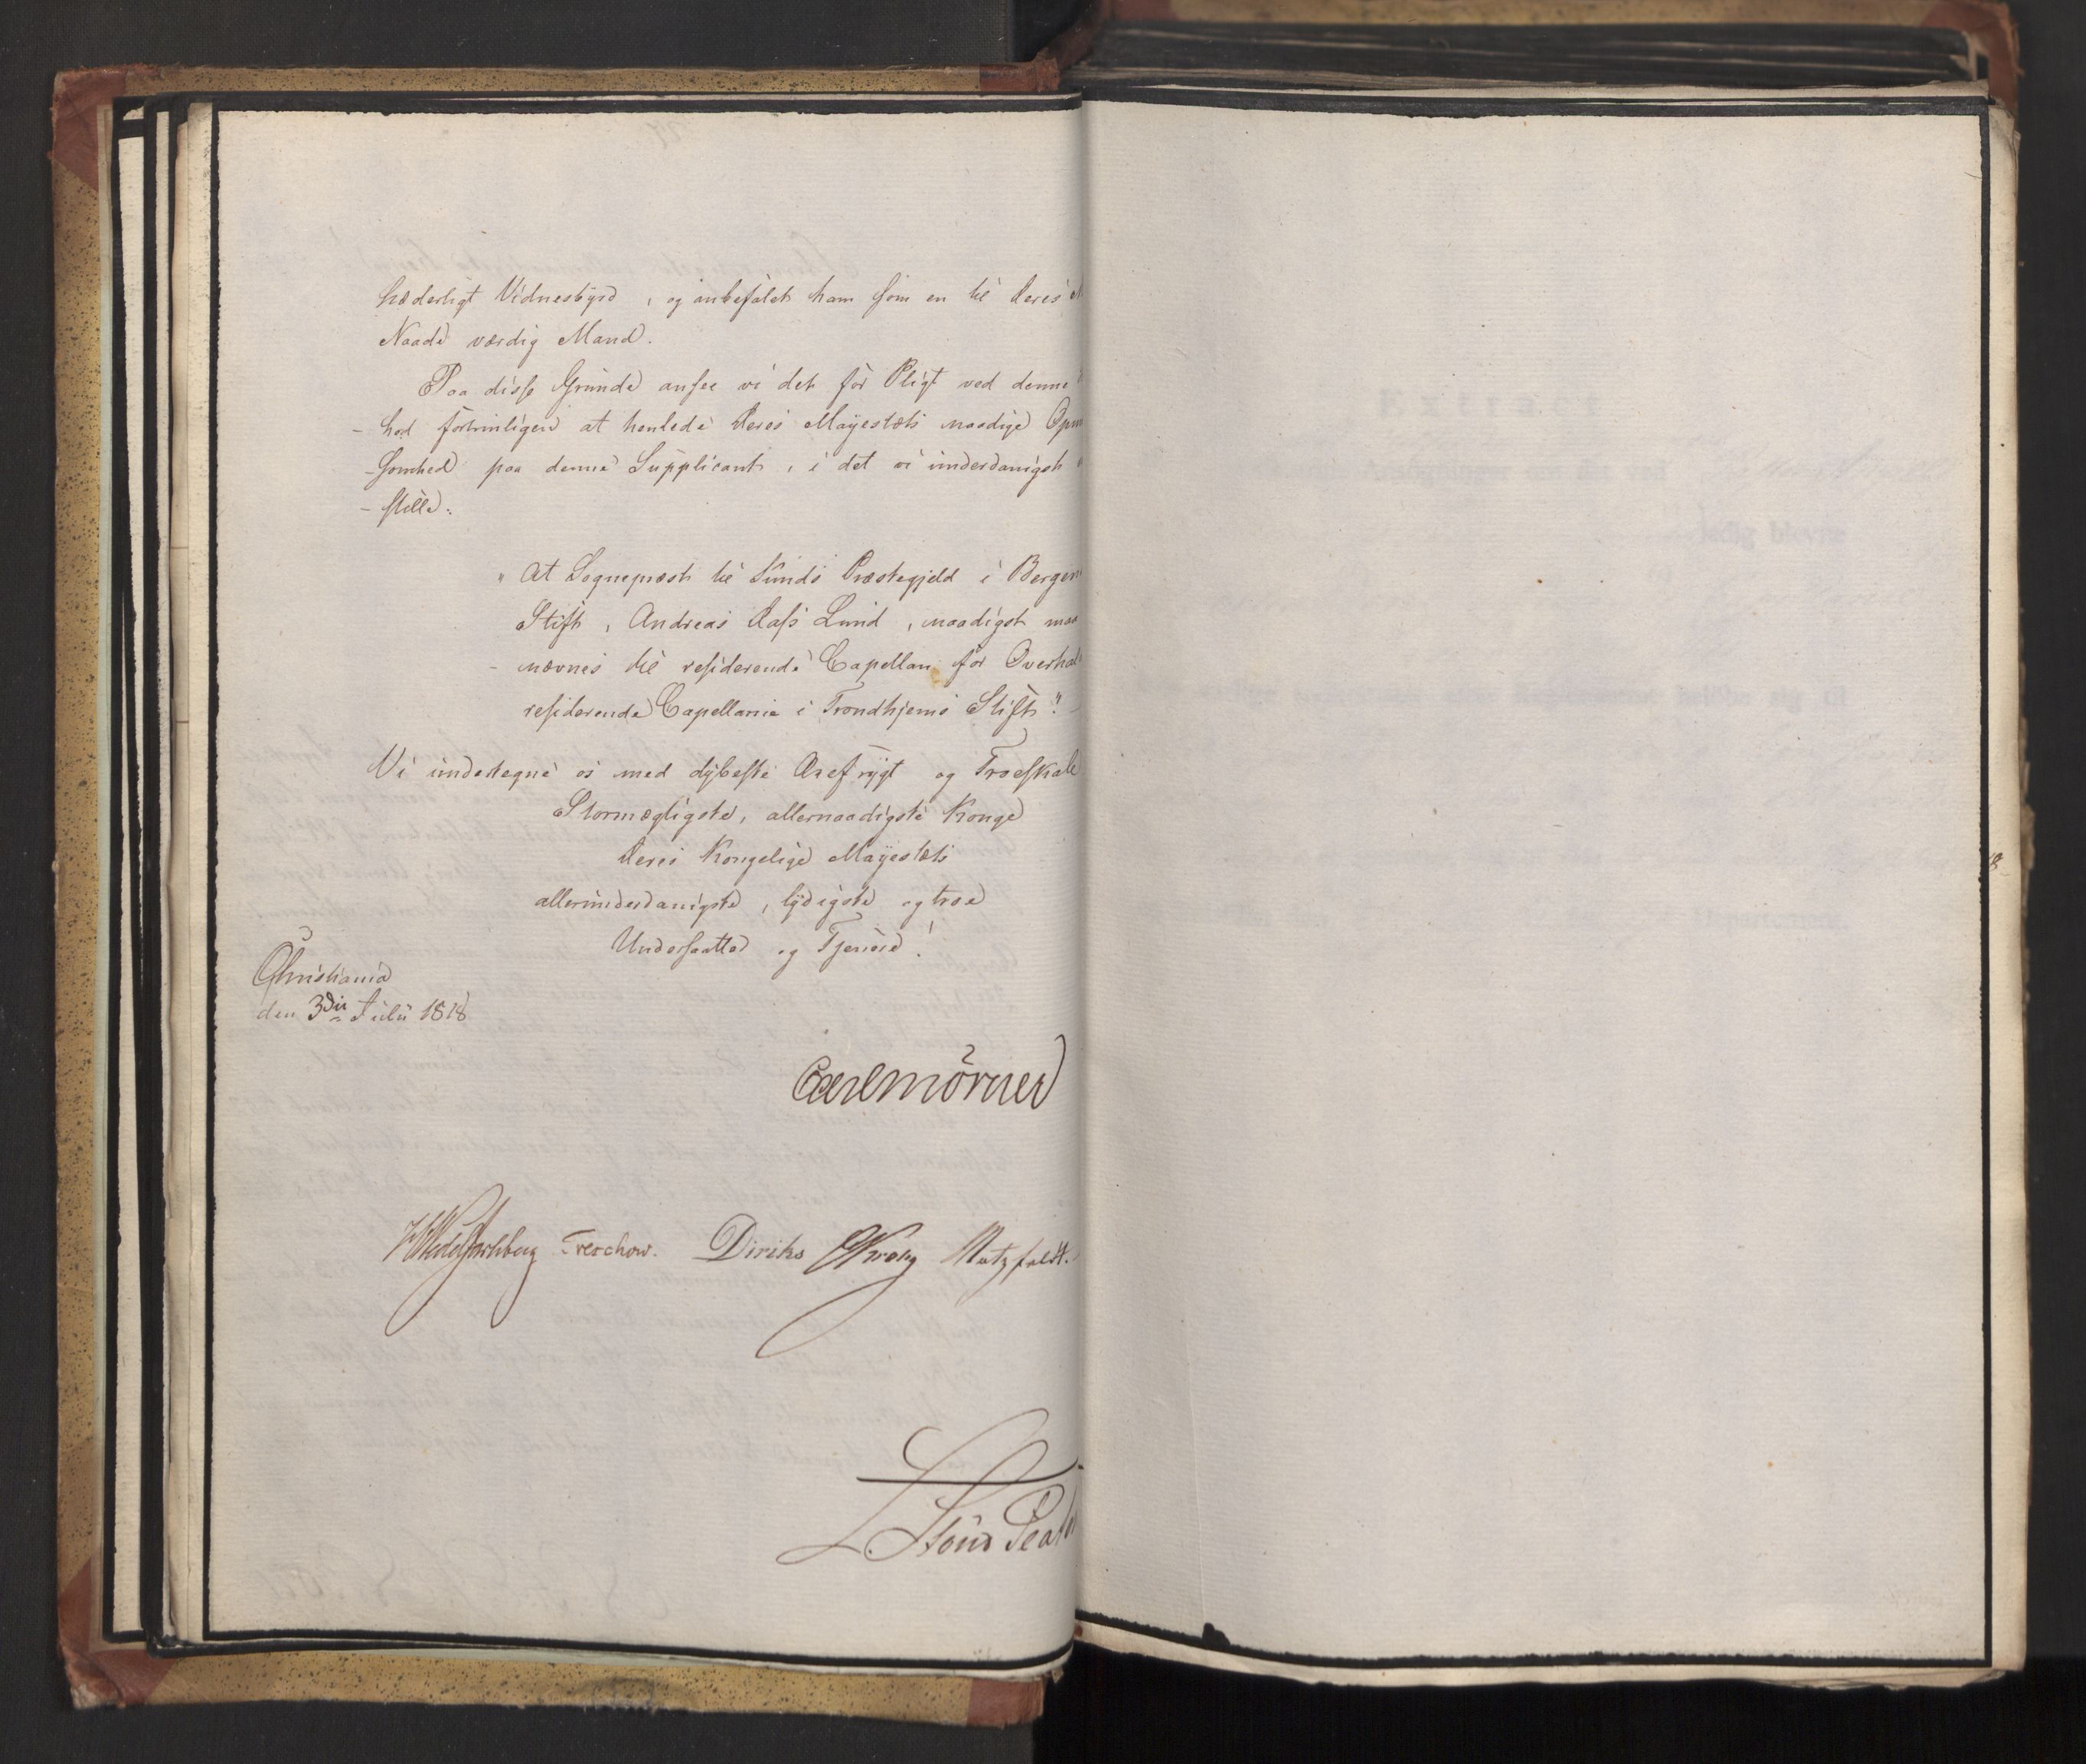 hæderligt Vidnesbyrd, og anbefalet ham som en til Deres
Naade værdig Mand.
Paa disse Grunde ansee vi det for Pligt ved denne
- hed fortrinligen at henlede Deres Majestæts naadige Opm
- somhed paa denne Supplicant, i det vi underdanigst
- stille:
"At Sognepræst til Sunds Præstegjeld i Bergens
Stift, Andreas Dass Lund, naadigst maa
- nævnes til residerende Capellan for Overhal
residerende Capellanie i Trondhjems Stift".
Vi undertegne os med dybeste Ærefrygt og Troeskab
Stormægtigste, allernaadigste Konge
Deres Kongelige Majestæts
allerunderdanigste, lydigste og troe
Undersaatter og Tjenere!
Christiania
den 3die Julii 1818
Carl Mörner
HWedelJarlsberg Treschow. Diriks Krohg Motzfeldt.